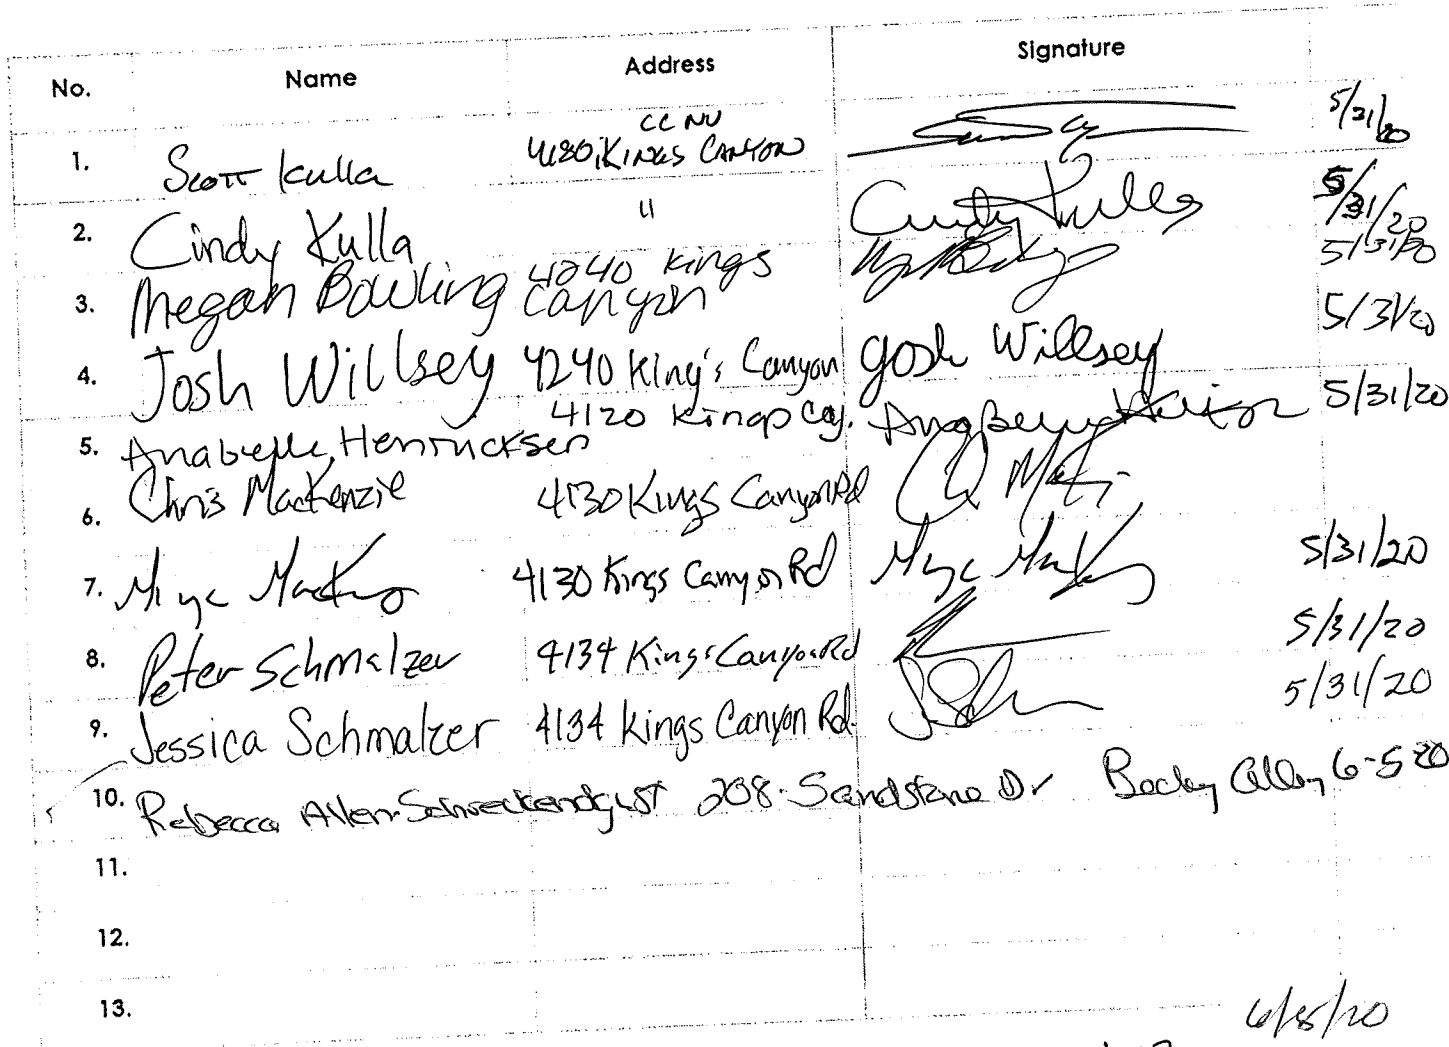 No. Name Address Signature
CC NV
1. Scott Kulla 4180 Kings Canyon 5/31/20
2. Cindy Kulla " Cindy Kulla 5/31/20
3. Megan Bowling 4240 Kings Canyon 5/31/20
4. Josh Willsey 4240 King's Canyon Josh Willsey 5/31/20
5. Anabelle Henricksen 4120 Kings 5/31/20
6. Chris MacKenzie 4130 Kings Canyon Rd
7. 4130 Kings Canyon Rd 5/31/20
8. Peter Schmalzer 4134 Kings Canyon Rd 5/31/20
9. Jessica Schmalzer 4134 Kings Canyon Rd. 5/31/20
10. Rebecca Allen- 208 Sandstone Dr Becky Allen 6-5 20
11.
12.
13.